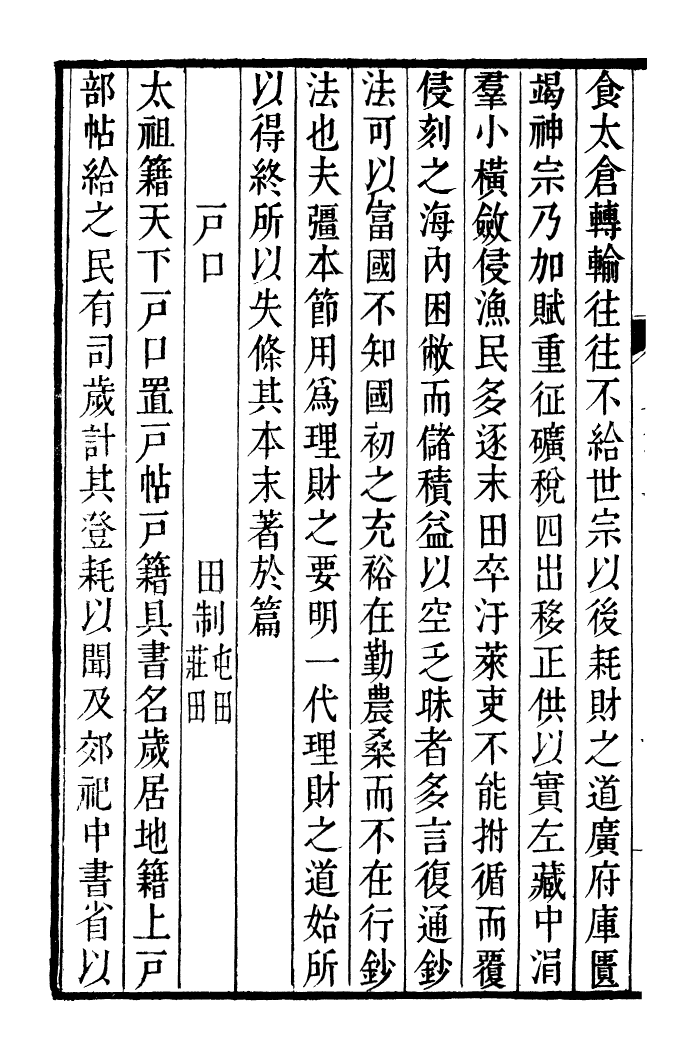 食太倉轉輸往往不給世宗以後耗財之道廣府庫匱
竭神宗乃加賦重征礦稅四出移正供以實左藏中涓
羣小橫斂侵漁民多逐末田卒汙萊吏不能拊循而覆
侵刻之海內困敝而儲積益以空乏昧者多言復通鈔
法可以富國不知國初之充裕在勤農桑而不在行鈔
法也夫彊本節用爲理財之要明一代理財之道始所
以得終所以失條其本末著於篇
戶口　田制屯田莊田
太祖籍天下戶口置戶帖戶籍具書名歲居地籍上戶
部帖給之民有司歲計其登耗以聞及郊祀中書省以